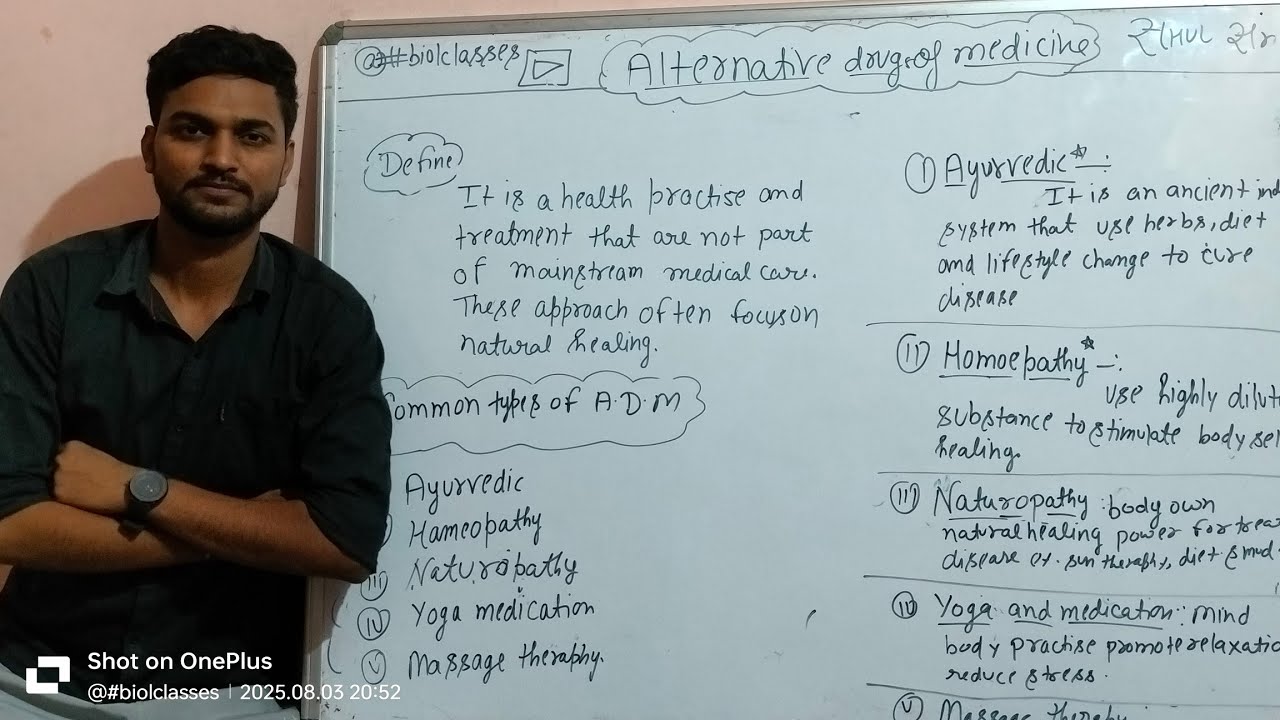 @##biolclasses
Alternative drug of medicine
Define
It is a health practise and
treatment that are not part
of mainstream medical care.
These approach often focus on
natural healing.
Common types of A.D.M
Ayurvedic
Hameopathy
III Naturopathy
IV Yoga medication
V Massage theraphy.
I Ayurvedic* —:
It is an ancient ind
system that use herbs, diet
and lifestyle change to cure
disease
II Homoepathy* —:
use highly dilut
substance to stimulate body sel
healing.
III Naturopathy : body own
natural healing power for trea
disease ex. sun theraphy, diet & mud
Yoga and medication :: mind
body practise promote relaxatio
reduce stress.
V Massage theraphy
Shot on OnePlus
@#biolclasses | 2025.08.03 20:52